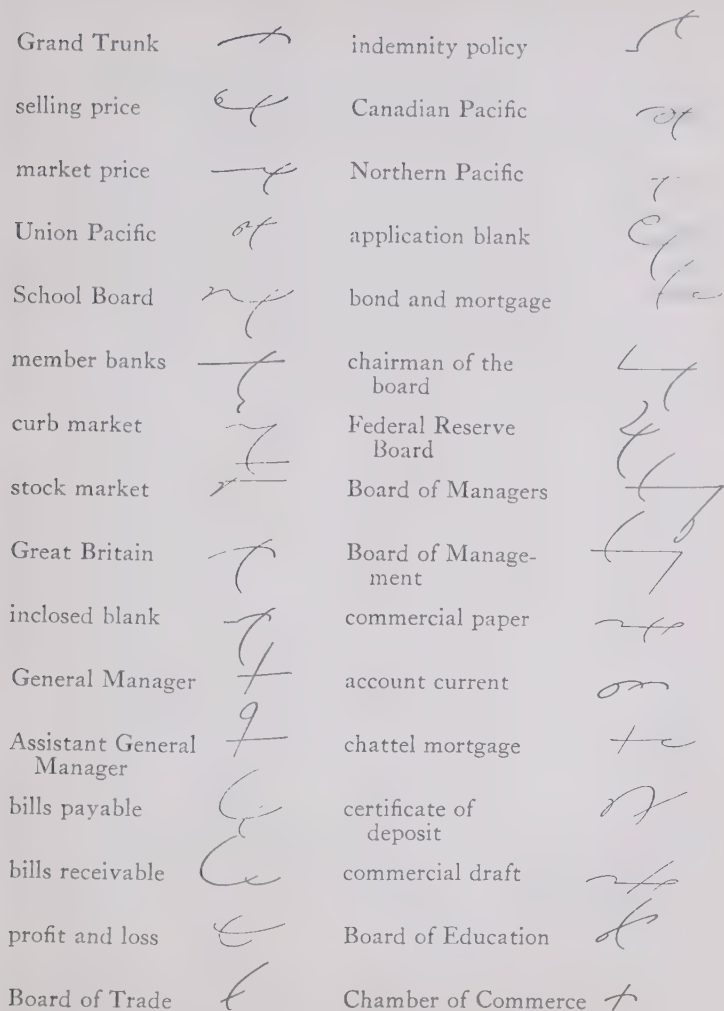 Grand Trunk
selling price
market price
Union Pacific
School Board
member banks
curb market
stock market
Great Britain
inclosed blank
General Manager
Assistant General
Manager
bills payable
bills receivable
profit and loss
Board of Trade
indemnity policy
Canadian Pacific
Northern Pacific
application blank
bond and mortgage
chairman of the
board
Federal Reserve
Board
Board of Managers
Board of Manage-
ment
commercial paper
account current
chattel mortgage
certificate of
deposit
commercial draft
Board of Education
Chamber of Commerce